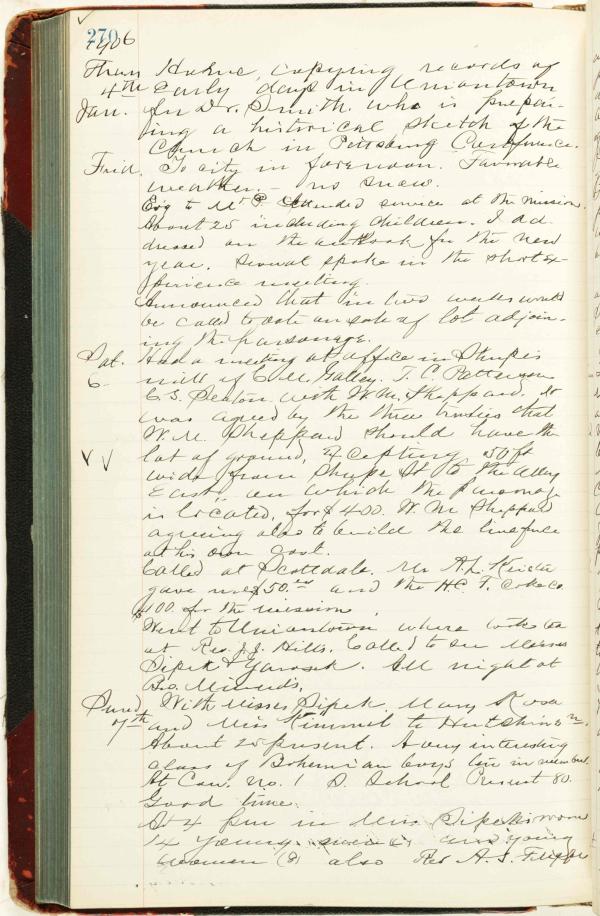 270
1906
Thurs Home, copying records of
4th early days in Uniontown
Jan. for Dr. Smith who is prepar-
ing a historical sketch of the
Church in Pittsburg Conference.
Frid. To city in forenoon. Favorable
weather. – no snow.
Eve to Mt P. Attended service at the mission.
About 25 including children. I ad
dressed on the outlook for the new
year. Several spoke in the short ex-
perience meeting.
Announced that in two weeks would
be called to vote on sale of lot adjoin-
ing the parsonage.
Sat. Had a meeting at office in Shupes
6. mill of C. M. Galley. T. C. Patterson
C. S. Seaton with W. M. Sheppard. It
was agreed by the three trustees that
W. M. Sheppard should have the
lot of ground, excepting 50 ft
wide from Shupe St to the alley
East, on which the parsonage
is located, for $400. W. M. Sheppard
agreeing also to build the line fence
at his own cost.
Called at Scottdale. Mr A. L. Keister
gave me $50.00 and the H. C. F. Coke Co.
$100. for the mission.
Went to Uniontown where
at Rev. J. J. Hills. Called to see Misses
Sipek & Yarosek. All night at
Bro.
Sund. With Misses Sipek, Mary Rosa
7th and Miss Kimmel to Hutchinson.
About 25 present. A very interesting
class of Bohemian boys in number.
At Con. No. 1 S. School Present 80.
Good time.
At 4 pm in Miss Sipeks room
14 young men and young
women (8) also Rev A. J.